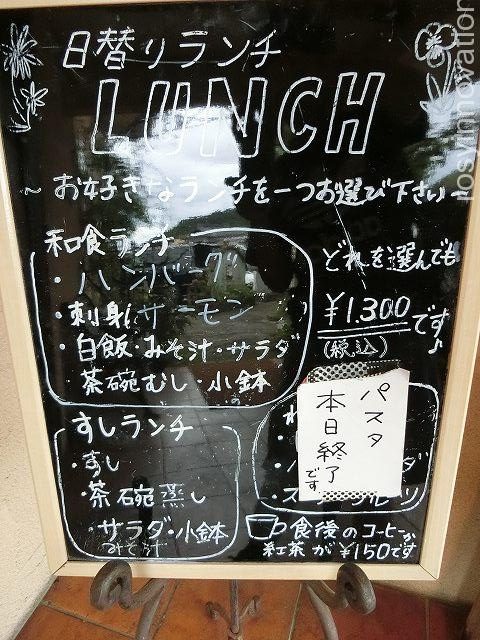 日替りランチ
LUNCH
～お好きなランチを一つお選び下さい
和食ランチ
・ハンバーグ
・刺身サーモン
・白飯・みそ汁・サラダ
・茶碗むし・小鉢
どれを選んでも
¥1.300です♪
(税込)
すしランチ
・すし
・茶碗蒸し
・サラダ・小鉢
みそ汁
パスタ
本日終了
です
食後のコーヒーか
紅茶が¥150です